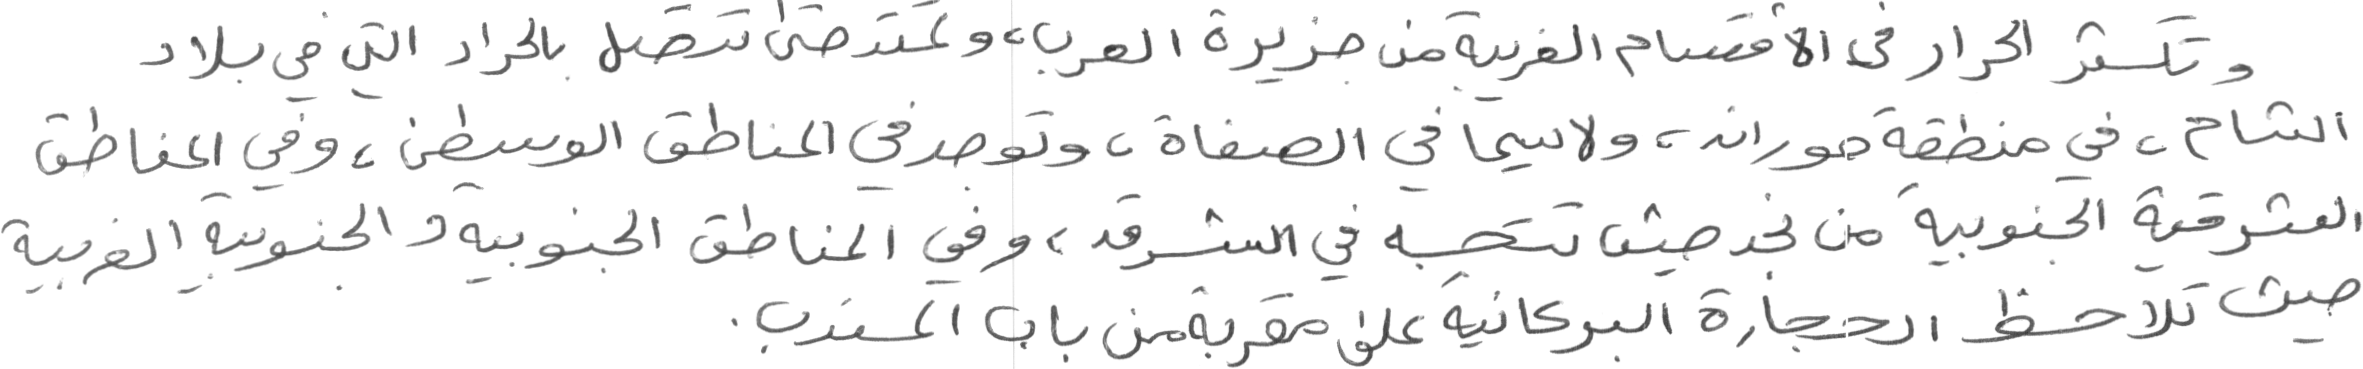 وتكثر الحرار في الأقسام الغربية من جزيرة العرب، وتمتد حتى تتصل بالحرار التي في بلاد
الشام، في منطقة حوران، ولاسيما في الصفاة، وتوجد في المناطق الوسطى، وفي المناطق
الشرقية الجنوبية من نجد حيث تتجه في الشرق، وفي المناطق الجنوبية والجنوبية الغربية
حيث تلاحظ الحجارة البركانية على مقربة من باب المندب.